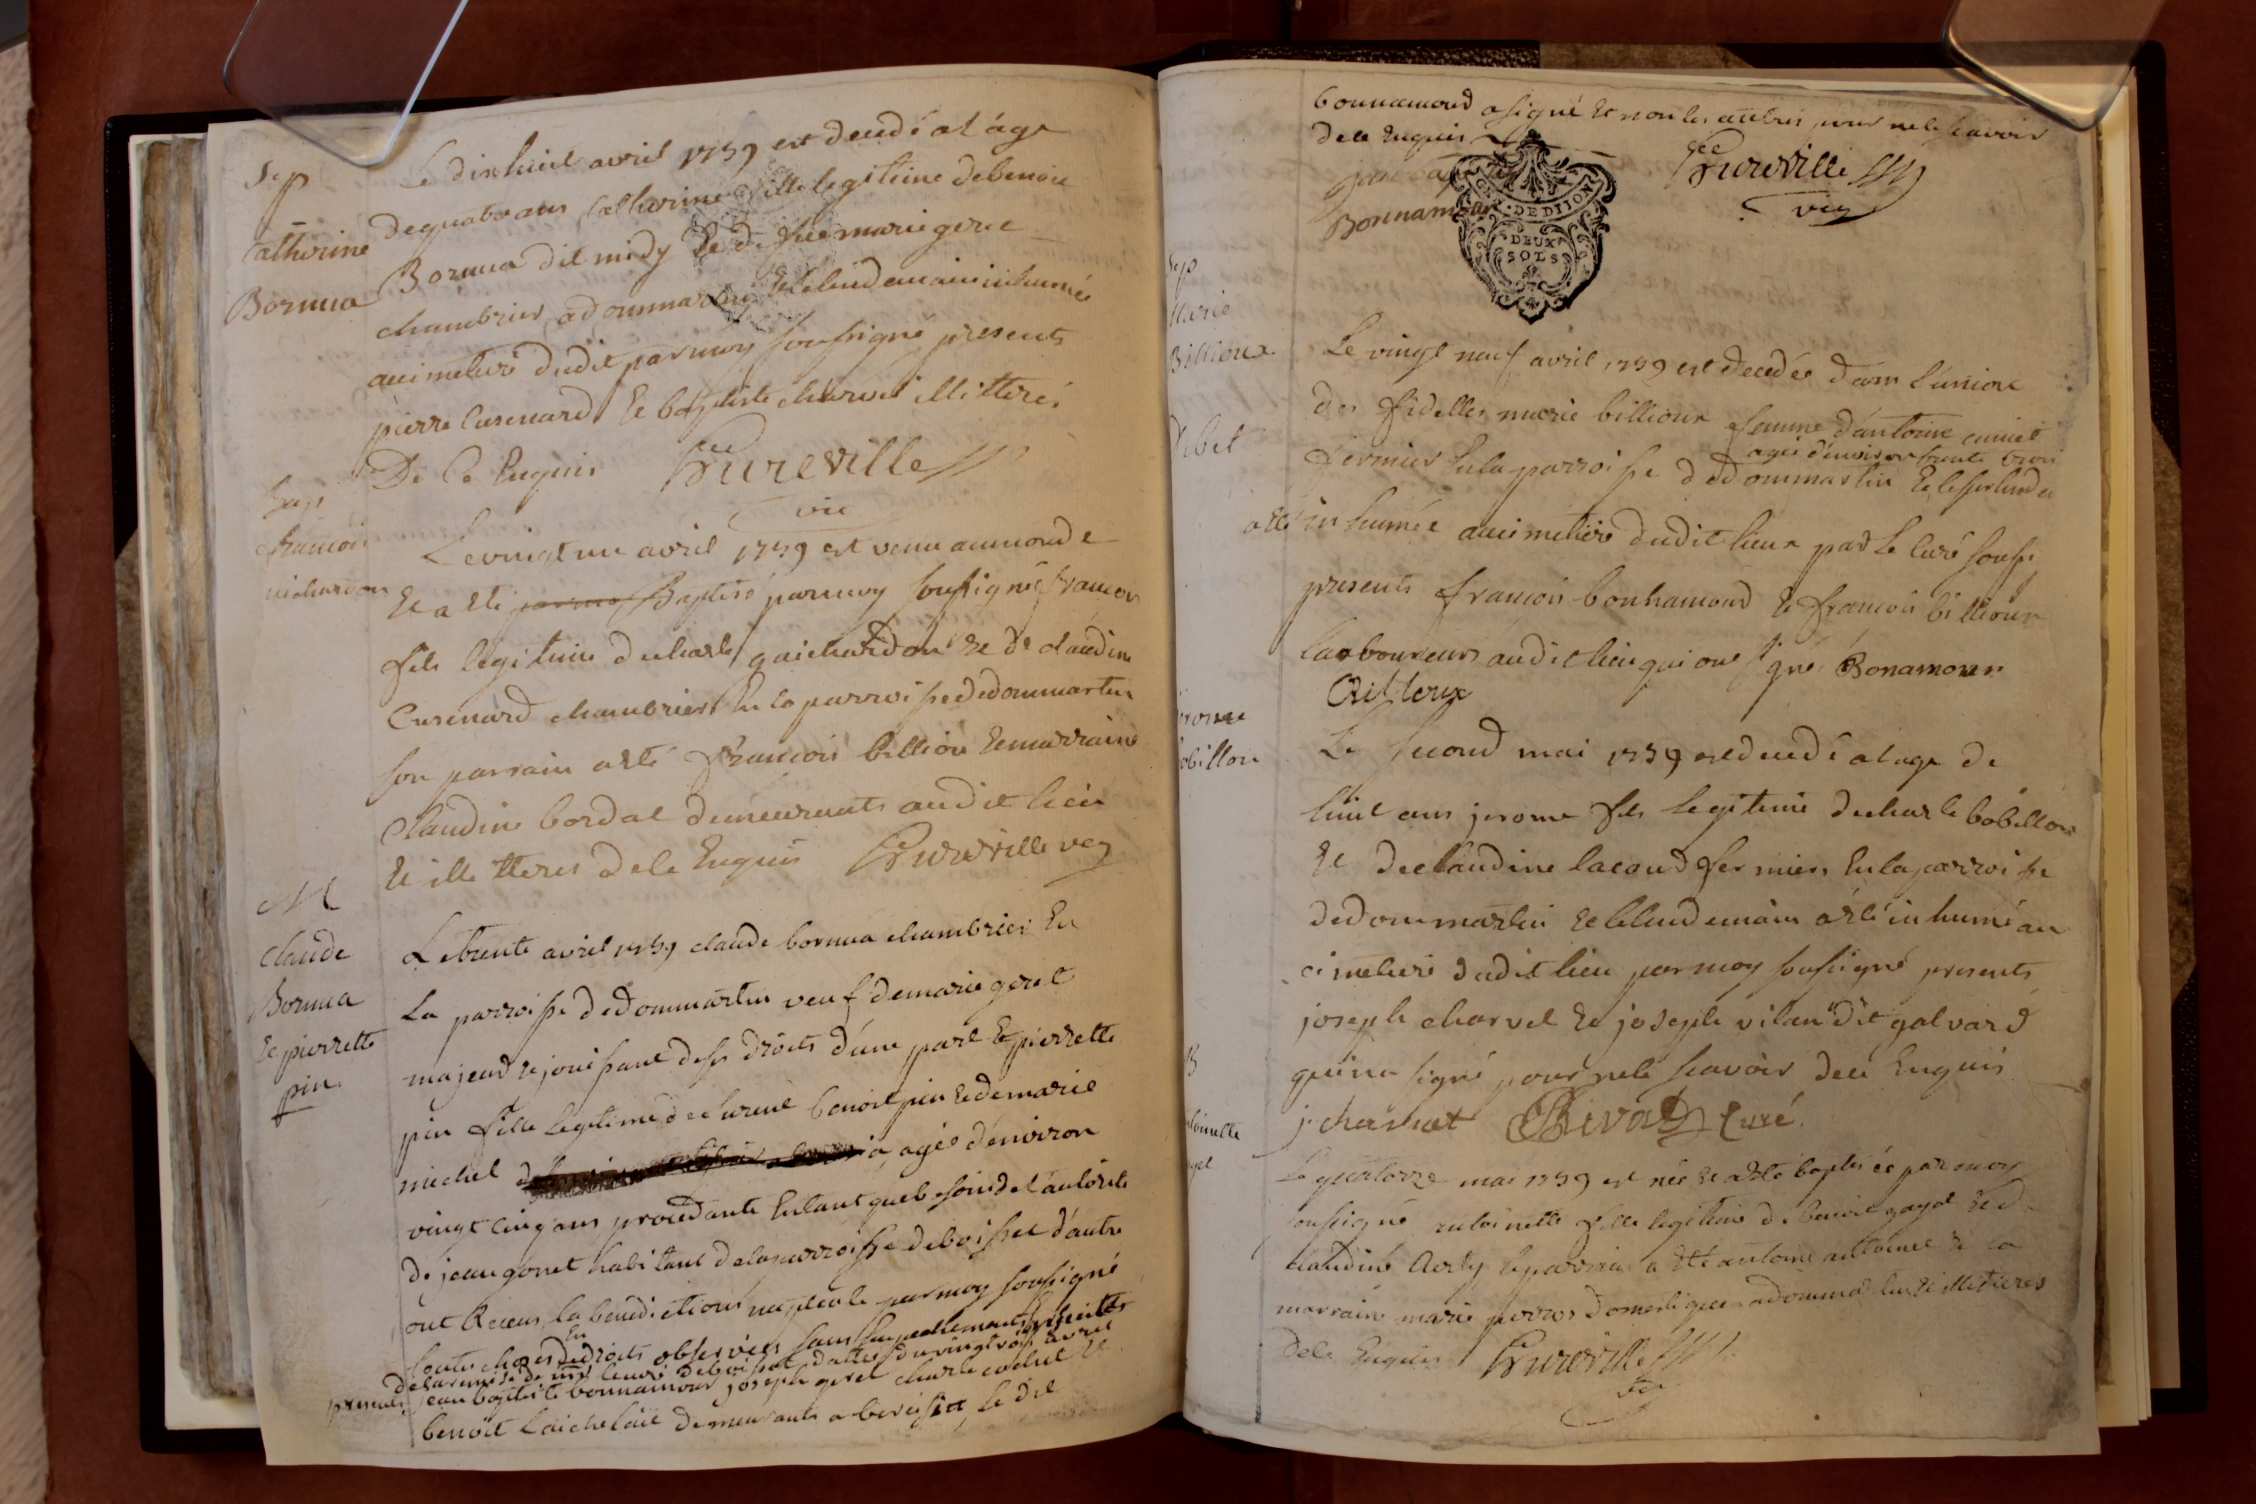 Sep
Catherine
Bornua
Le dixhuit avril 1759 est decedé a l'age
de quatre ans Catherine fille legitime de benoit
Bornua dit midy et de marie geret
chambrier a dommartin et le lendemain inhumée
au cimetiere dudit par moy soussigné presents
pierre Cusenard et baptiste charvet illitterés
De ce Enquis Fureville
vic
Bap
francois
guichardon
Le vingt un avril 1759 est venu au monde
et a eté baptisé par moy soussigné francois
fils legitime de charle guichardon et de claudine
Cusenard chambriers en la parroisse de dommartin
son parrain a eté francois billiou et marraine
Claudine bordat demeurants audit lieu
et illitteres de ce Enquis Fureville vic
M
claude
Bornua
et pierrette
pin
Le trente avril 1759 claude bornua chambrier En
La parroisse de dommartin veuf de marie geret
majeur et jouissant de ses droits d'une part et pierrette
pin fille legitime de benoit pin et de marie
michel agée d'environ
vingt cinq ans procedante Entant que besoin de l'autorité
de jean gonet habitant de la parroisse de boisset d'autre
ont Recus la benediction nuptiale par moy soussigné
toutes choses de droits observées sans empechement
de la remise de mr le curé de boisset datté du vingt avril
presents jean baptiste bonnamour joseph geret charle cochet et
benoit laichelait demeurants a boisset le dit
bonnamour a signé et non les autres pour ne le sçavoir
de ce Enquis
Bonnamour Fureville
vic
GEN. DE DIJON
DEUX
SOLS
Sep
Marie
Billioux
Le vingt neuf avril 1759 est decedée dans l'union
des fidelles marie billioux femme d'antoine
agée d'environ trente trois
fermier En la parroisse de dommartin et le surlendem
a eté inhumée au cimetiere dudit lieux par le curé souss
presents francois bonnamour et francois billioux
laboureurs audit lieu qui ont signé Bonamour
Billioux
jerome
bobillon
Le second mai 1759 est decedé a l'age de
huit ans jerome fils legitime de charle bobillon
et de claudine lacour fermiers En la parroisse
de dommartin et le lendemain a eté inhumé au
cimetiere dudit lieu par moy soussigné presents
joseph charvet et joseph vilan dit galvard
qui n'a signé pour ne le sçavoir de ce Enquis
j. charvat Rivat Curé
B
antoinette
gayet
Le quatorze mai 1759 est née et a eté baptisée par moy
soussigné antoinette fille legitime de benoit gayet et de
claudine le parrain a eté antoine et la
marraine marie perras domestiques a dommartin et illitteres
de ce Enquis Fureville
vic